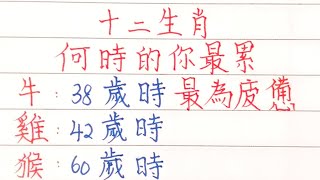 十二生肖
何時的你最累
牛:38歲時 最為疲憊
雞:42歲時
猴:60歲時